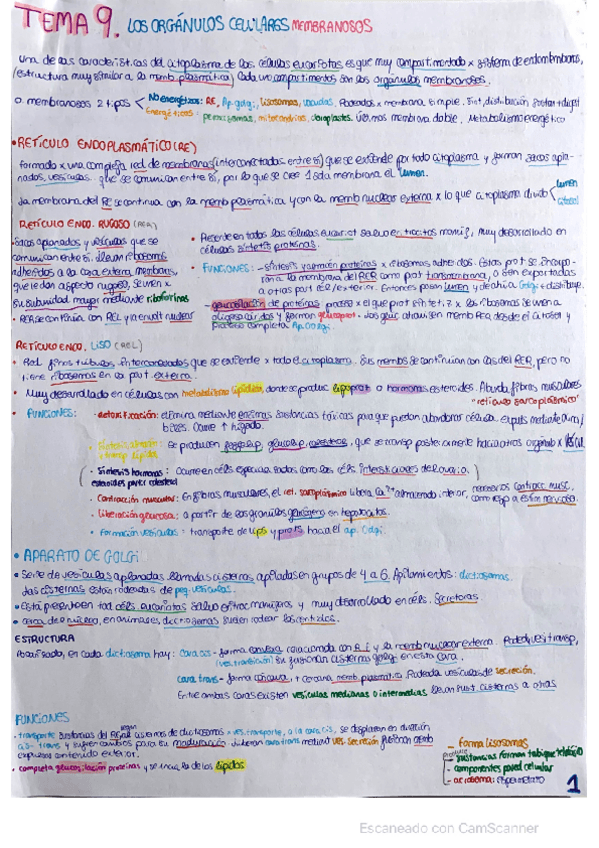 TEMA 9. LOS ORGÁNULOS CELULARES MEMBRANOSOS
Una de las características del citoplasma de las células eucariotas, es que muy compartimentado x sistema de endomembrana,
(estructura muy similar a la memb. plasmática) Cada uno compartimentos son los orgánulos membranosos.
O. membranosos 2 tipos
No energéticos: RE, Ap. golgi, lisosomas, vacuolas. Rodeados x membrana simple.
Energéticos: peroxisomas, mitocondrias, cloroplastos. membrana doble. Metabolismo energético
• RETÍCULO ENDOPLASMÁTICO (RE)
formado x una compleja red de membranas (interconectadas entre sí) que se extiende por todo citoplasma y forman sacos apla-
nados, vesículas que se comunican entre sí, por lo que se cree 1 sola membrana el lumen.
La membrana del RE se continua con la memb plasmática y con la memb nuclear externa x lo que citoplasma divido
lumen
citosol
RETÍCULO ENDO. RUGOSO (RER)
• Sacos aplanados y vesículas que se
comunican entre sí. llevan ribosomas
adheridos a la cara externa membrana,
que le dan aspecto rugoso, se unen x
su subunidad mayor mediante riboforinas
• RER se continúa con REL y la envolt nuclear
• Presente en todas las células eucariot salvo eritrocitos mamif, muy desarrollado en
células síntesis proteínas.
• FUNCIONES: - síntesis y almacén proteínas x ribosomas adheridos. Estas prot se incorpo-
ran a la membrana del RER como prot transmembrana, o son exportadas
a otras part cél/exterior. Entonces pasan lumen y de ahí a Golgi + distribuye.
- glucosilación de proteínas proceso x el que prot sintetiz x los ribosomas se unen a
oligosacáridos y forman glucoprot. Los gluc atraviesan memb RER desde el citosol y
proceso completa Ap. Golgi.
RETÍCULO ENDO. LISO (REL)
• Red finos túbulos interconectados que se extiende x todo el citoplasma. Sus membs se continúan con las del RER, pero no
tiene ribosomas en la part externa.
• Muy desarrollado en células con metabolismo lipídico, donde se produc lipoprot o hormonas esteroides. Abunda fibras musculares
"retículo sarcoplásmico"
• FUNCIONES: - detoxificación: elimina mediante enzimas sustancias tóxicas para que puedan abandonar célula.
Ocurre + hígado.
Se producen fosfolip, glucolip, colesterol, que se transp posteriormente hacia otros orgánulos x vesícul.
• Síntesis hormonas: Ocurre en céls especializadas como las céls intersticiales del ovario.
esteroides partir colesterol
• Contracción muscular: En fibras musculares, el ret. sarcoplásmico libera Ca²⁺ almacenado interior, necesarios contracc musc,
como resp a estím nervioso.
• Liberación glucosa: a partir de los gránulos glucógeno en hepatocitos.
• Formación vesículas: transporte de lips y prots hacia el ap. Golgi.
• APARATO DE GOLGI
• Serie de vesículas aplanadas llamadas cisternas apiladas en grupos de 4 a 6. Apilamientos: dictiosomas.
Las cisternas están rodeadas de peq. vesículas.
• Está presente en tod céls eucariotas salvo eritroc mamíferos y muy desarrollado en céls. Secretoras.
• cerca de núcleo, en animales, dictiosomas suelen rodear los centriolos.
ESTRUCTURA
Polarizado, en cada dictiosoma hay: cara cis - forma convexa relacionada con RE y la memb nuclear externa. Rodeada vesi transp,
(ves. transición) se fusionan cisternas golgi en esta cara.
cara trans - forma cóncava, + cercana memb. plasmática. Rodeada vesículas de secreción.
Entre ambas caras existen vesículas medianas o intermedias llevan sust cisternas a otras
FUNCIONES
• transporte sustancias del RE, al cisternas de dictiosomas x ves. transporte, a la cara cis, se desplazan en dirección
cis- trans y sufren cambios para su maduración. Liberan cara trans mediant ves. secreción
expulsan contenido exterior.
• completa glucosilación proteínas y se inicia la de los lípidos
- forma lisosomas
produce
- sustancias forman tabique telofásico
- componentes pared celular
- acrosoma: espermatozo
1
Escaneado con CamScanner